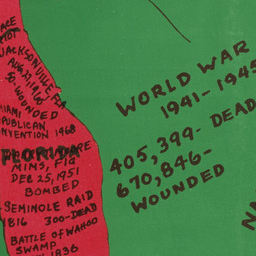 RIOT
JACKSONVILLE, FLA
AUG 27, 1960
50 WOUNDED
MIAMI
REPUBLICAN
CONVENTION 1968
FLORIDA
MIMS, FLA
DEC 25, 1951
BOMBED
SEMINOLE RAID
1816 300-DEAD
BATTLE OF WAHOO
SWAMP
1836
WORLD WAR
1941-1945
405,399- DEAD
670,846-
WOUNDED